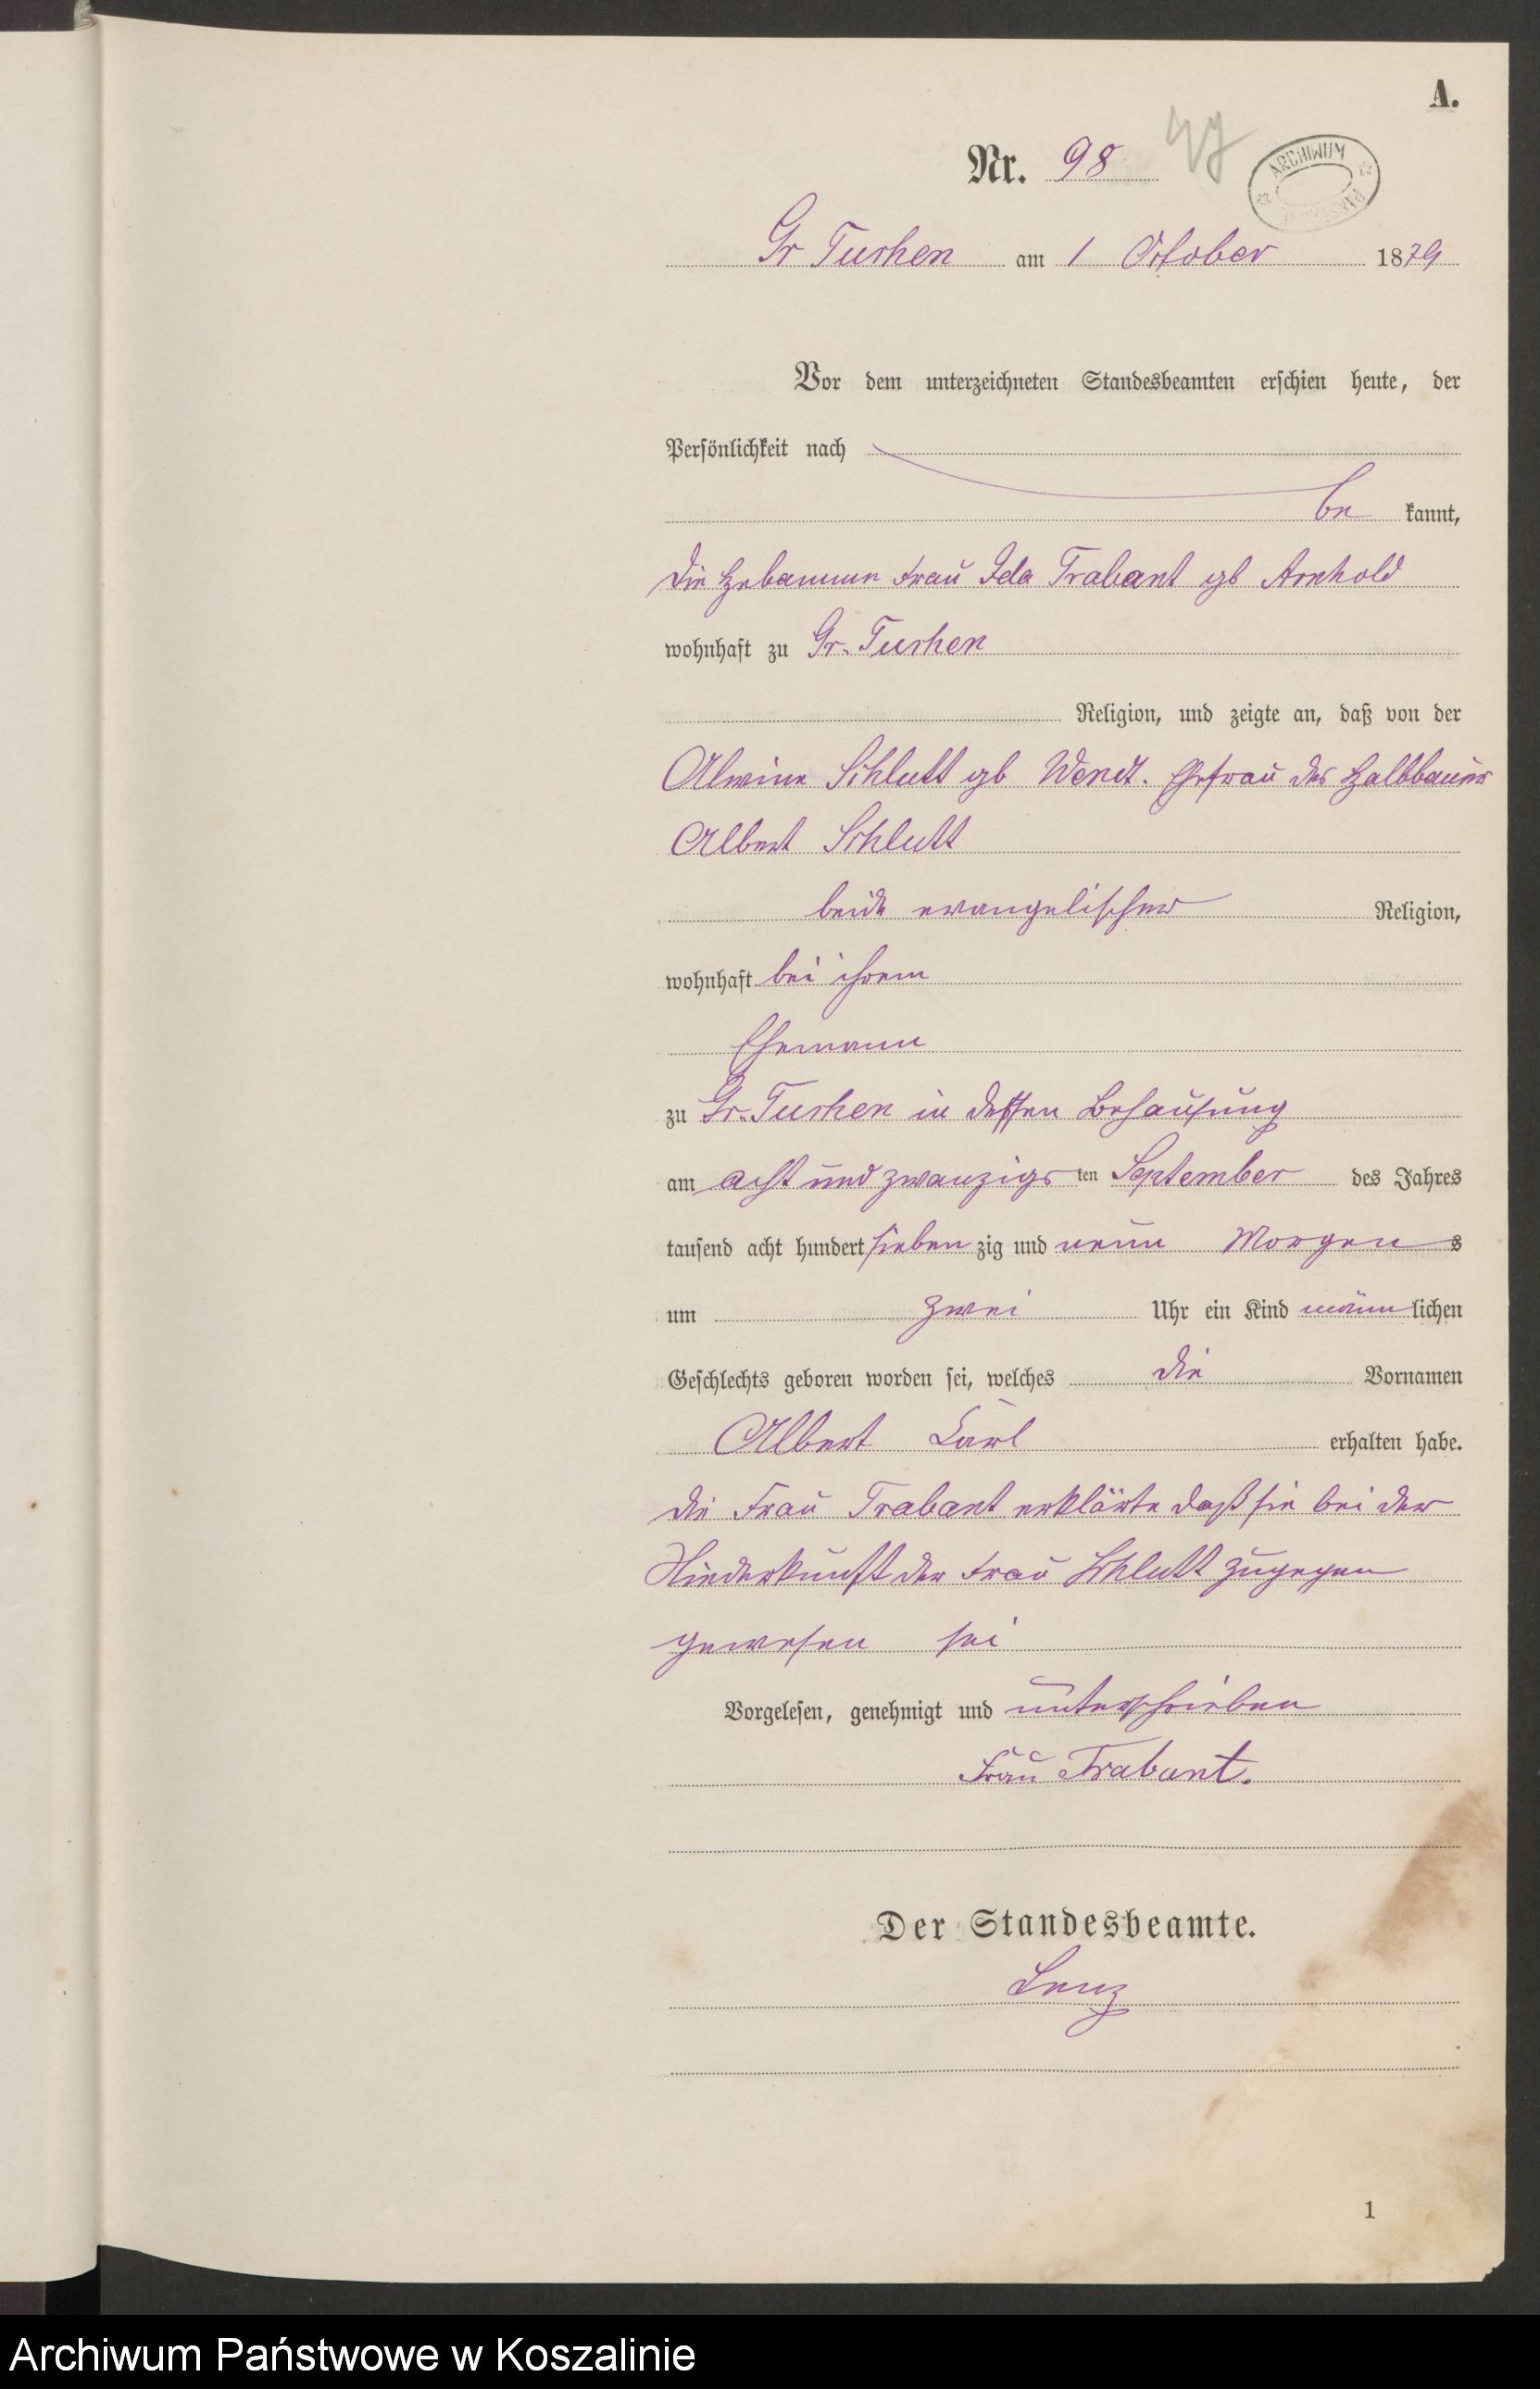 A.
Nr. 98
ARCHIWUM
Gr Tuchen am 1 October 1879
Vor dem unterzeichneten Standesbeamten erschien heute, der
Persönlichkeit nach
be kannt,
die Hebamme Frau Ida Trabant gb Arnhold
wohnhaft zu Gr. Tuchen
Religion, und zeigte an, daß von der
Alwine Schlutt gb Wendt. Ehefrau des Halbbauer
Albert Schlutt
beide evangelischer Religion,
wohnhaft bei ihrem
Ehemann
zu Gr. Tuchen in dessen Behausung
am acht und zwanzigs ten September des Jahres
tausend acht hundert sieben zig und neun Morgens
um zwei Uhr ein Kind männ lichen
Geschlechts geboren worden sei, welches die Vornamen
Albert Carl erhalten habe.
die Frau Trabant erklärte daß sie bei der
Niederkunft der Frau Schlutt zugegen
gewesen sei
Vorgelesen, genehmigt und unterschrieben
Frau Trabant.
Der Standesbeamte.
Lenz
1
Archiwum Państwowe w Koszalinie